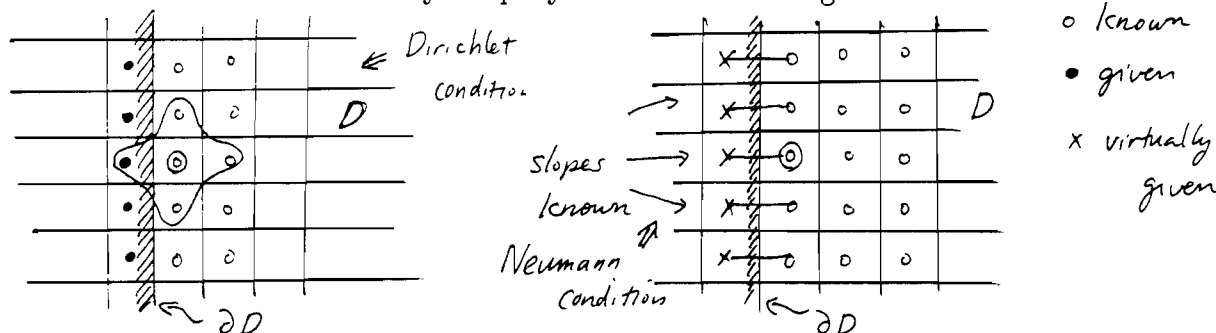 Dirichlet
condition
D
∂D
slopes
known
Neumann
condition
D
∂D
o known
• given
x virtually
given